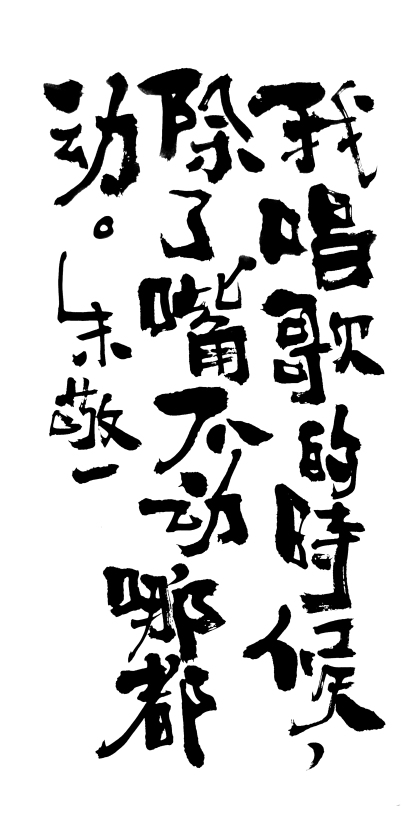 我唱歌的時候，
除了嘴不动哪都
动。朱敬一